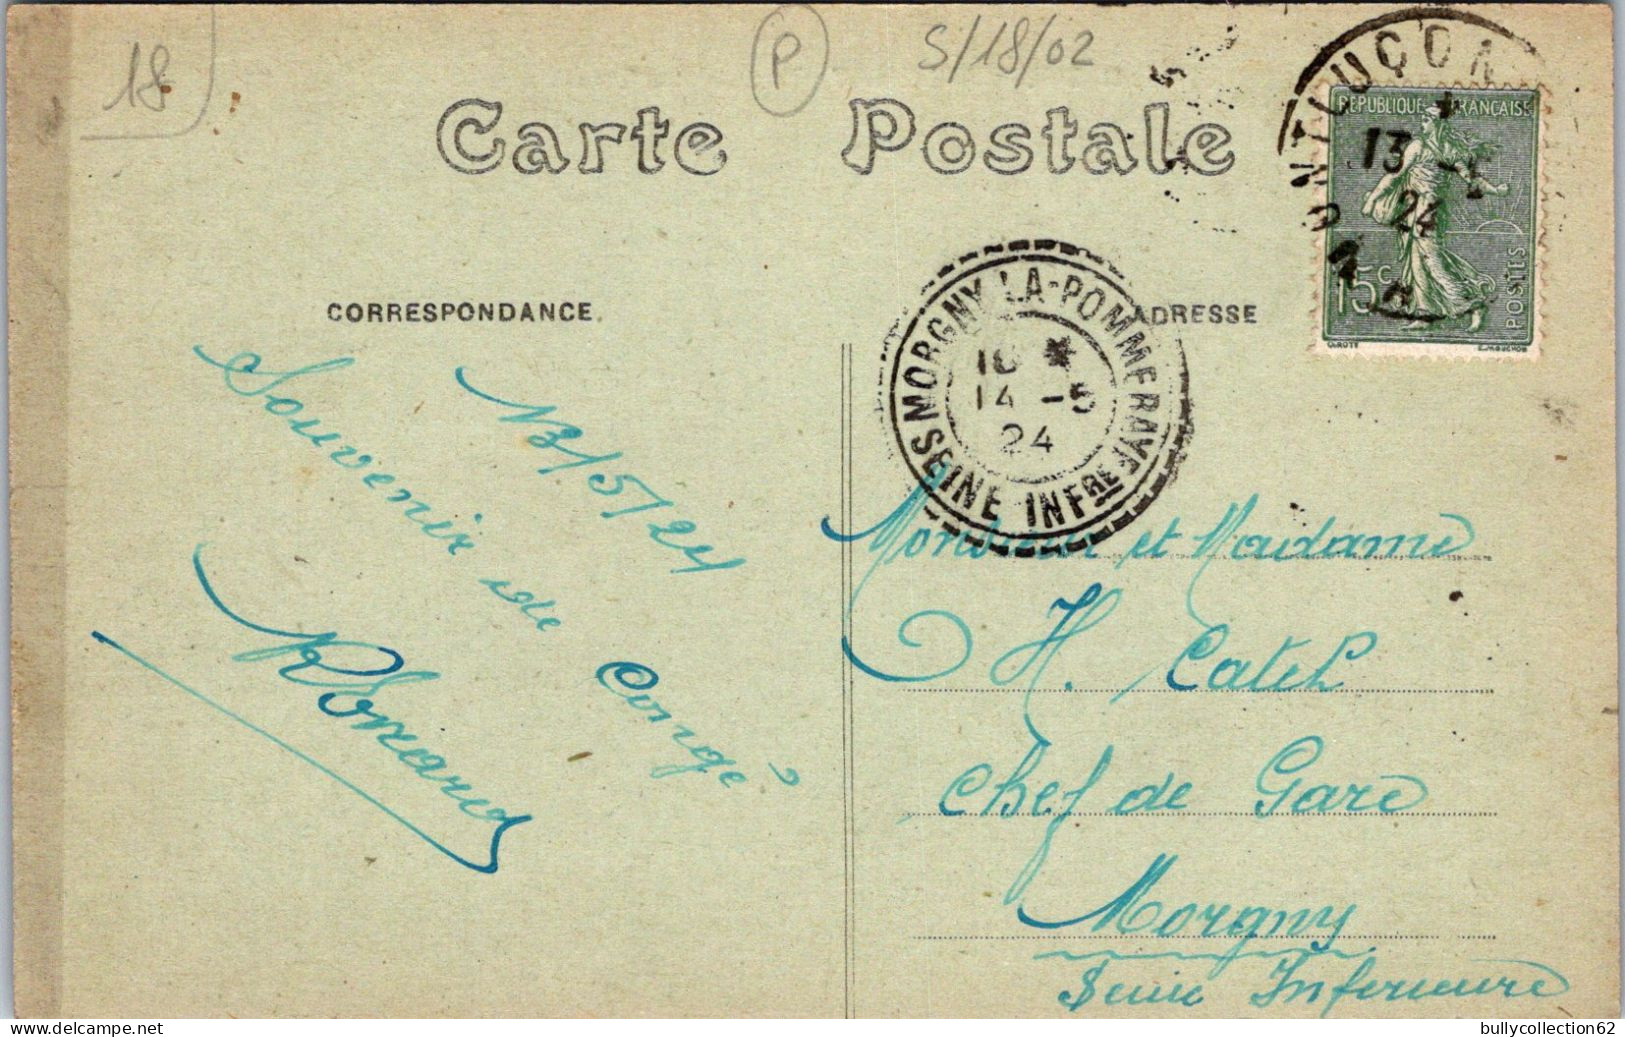 18
P
S/18/02
Carte Postale
RÉPUBLIQUE FRANÇAISE
15c
POSTES
O.ROTY
13
24
CORRESPONDANCE.
ADRESSE
MORGNY-LA-POMMERAYE
14 -5
24
SEINE INFRE
13/5/24
Souvenir de Congé
Monsieur et Madame
H. Catel
Chef de Gare
Morgny
Seine Inferieure
bullycollection62